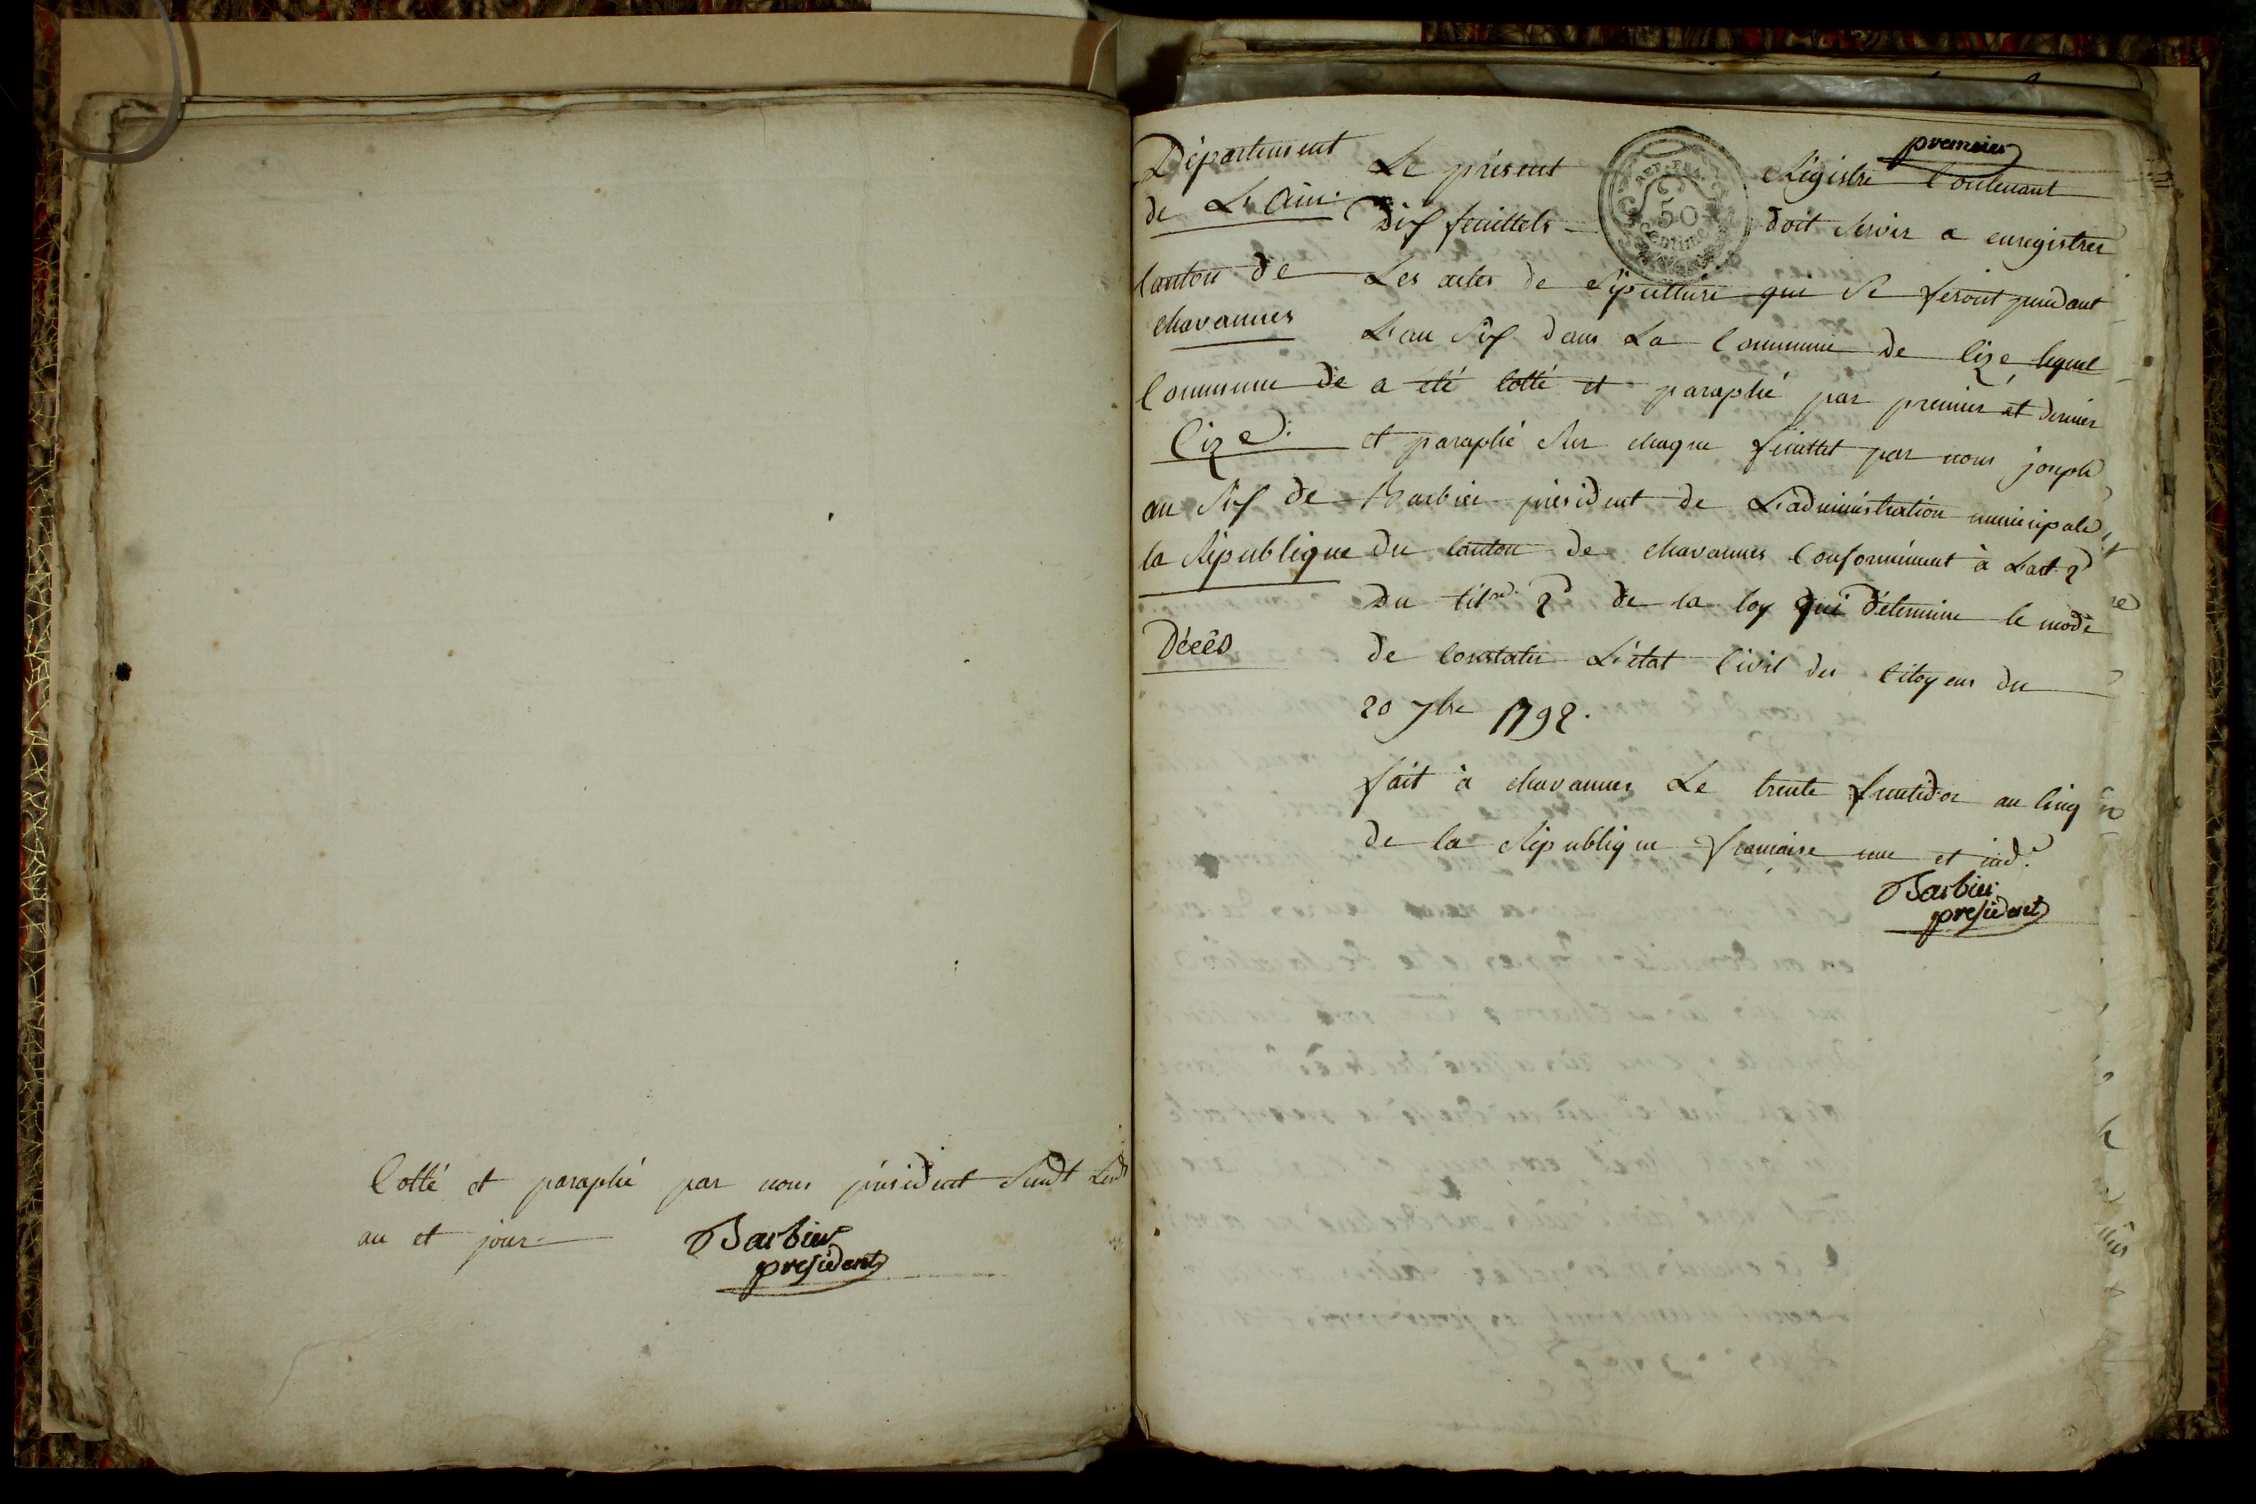 Cotté et paraphé par nous président Susdt Lesd
an et jour
Barbier
president
premier
Département
de L'Ain
Canton de
chavannes
Commune de
Cize
an Six de
la République
Décès
REP. FRA.
50
Centimes
Le présent Régistre Contenant
Dix feuillets doit Servir a enregistrer
Les actes de Sépulture qui Se feront pendant
L'an Six dans La Commune de Cize lequel
a été Cotté et paraphé par premier et dernier
et paraphé Sur chaque feuillet par nous joseph
Barbier président de L'administration municipale
du Canton de chavannes Conformément à L'art 2
Du titre 2 de la loy qui détermine le mode
de Constater L'état Civil des Citoyens du
20 7bre 1792.
fait à chavannes Le trente fructidor an Cinq
de la République francaise une et ind.
Barbier
president